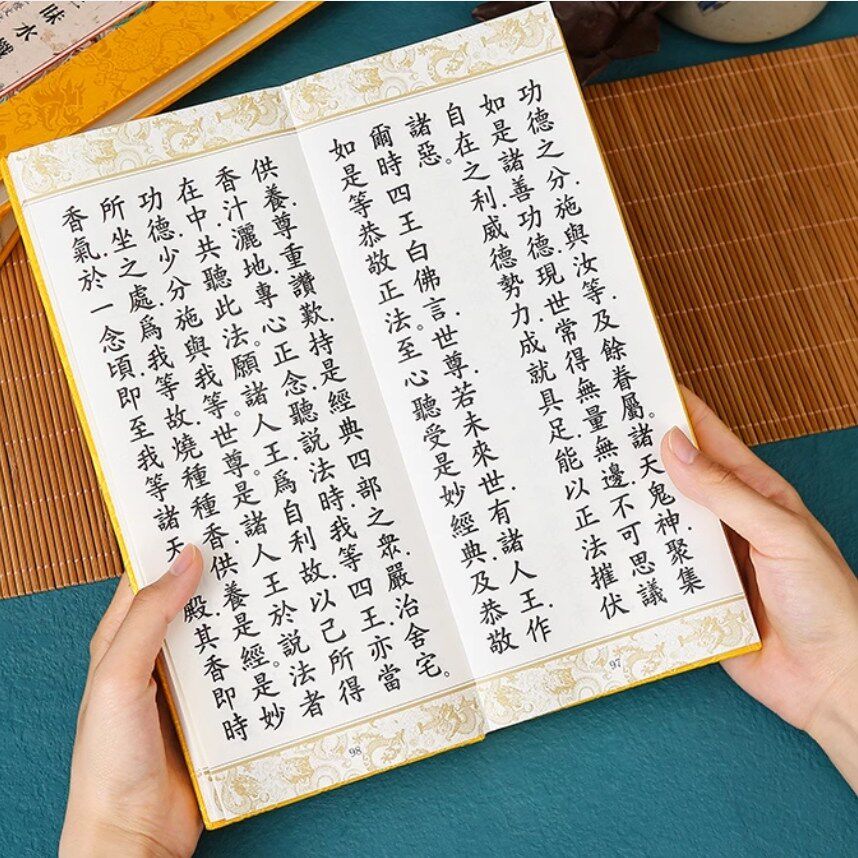 功德之分.施與汝等.及餘眷屬。諸天鬼神聚集
如是諸善功德.現世常得無量無邊.不可思議
自在之利.威德勢力.成就具足.能以正法摧伏
諸惡。
爾時四王白佛言.世尊.若未來世.有諸人王.作
如是等恭敬正法。至心聽受是妙經典.及恭敬
97
供養.尊重讚歎.持是經典四部之眾.嚴治舍宅。
香汁灑地.專心正念.聽說法時.我等四王.亦當
在中.共聽此法。願諸人王.為自利故.以己所得
功德.少分施與我等。世尊.是諸人王.於說法者
所坐之處.為我等故.燒種種香.供養是經.是妙
香氣.於一念頃.即至我等諸天殿.其香即時
98
味水